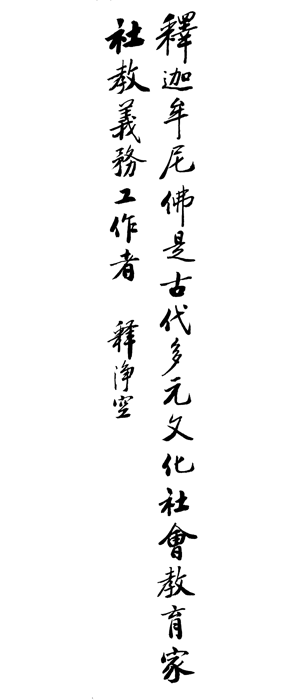 釋迦牟尼佛是古代多元文化社會教育家
社教義務工作者 釋淨空